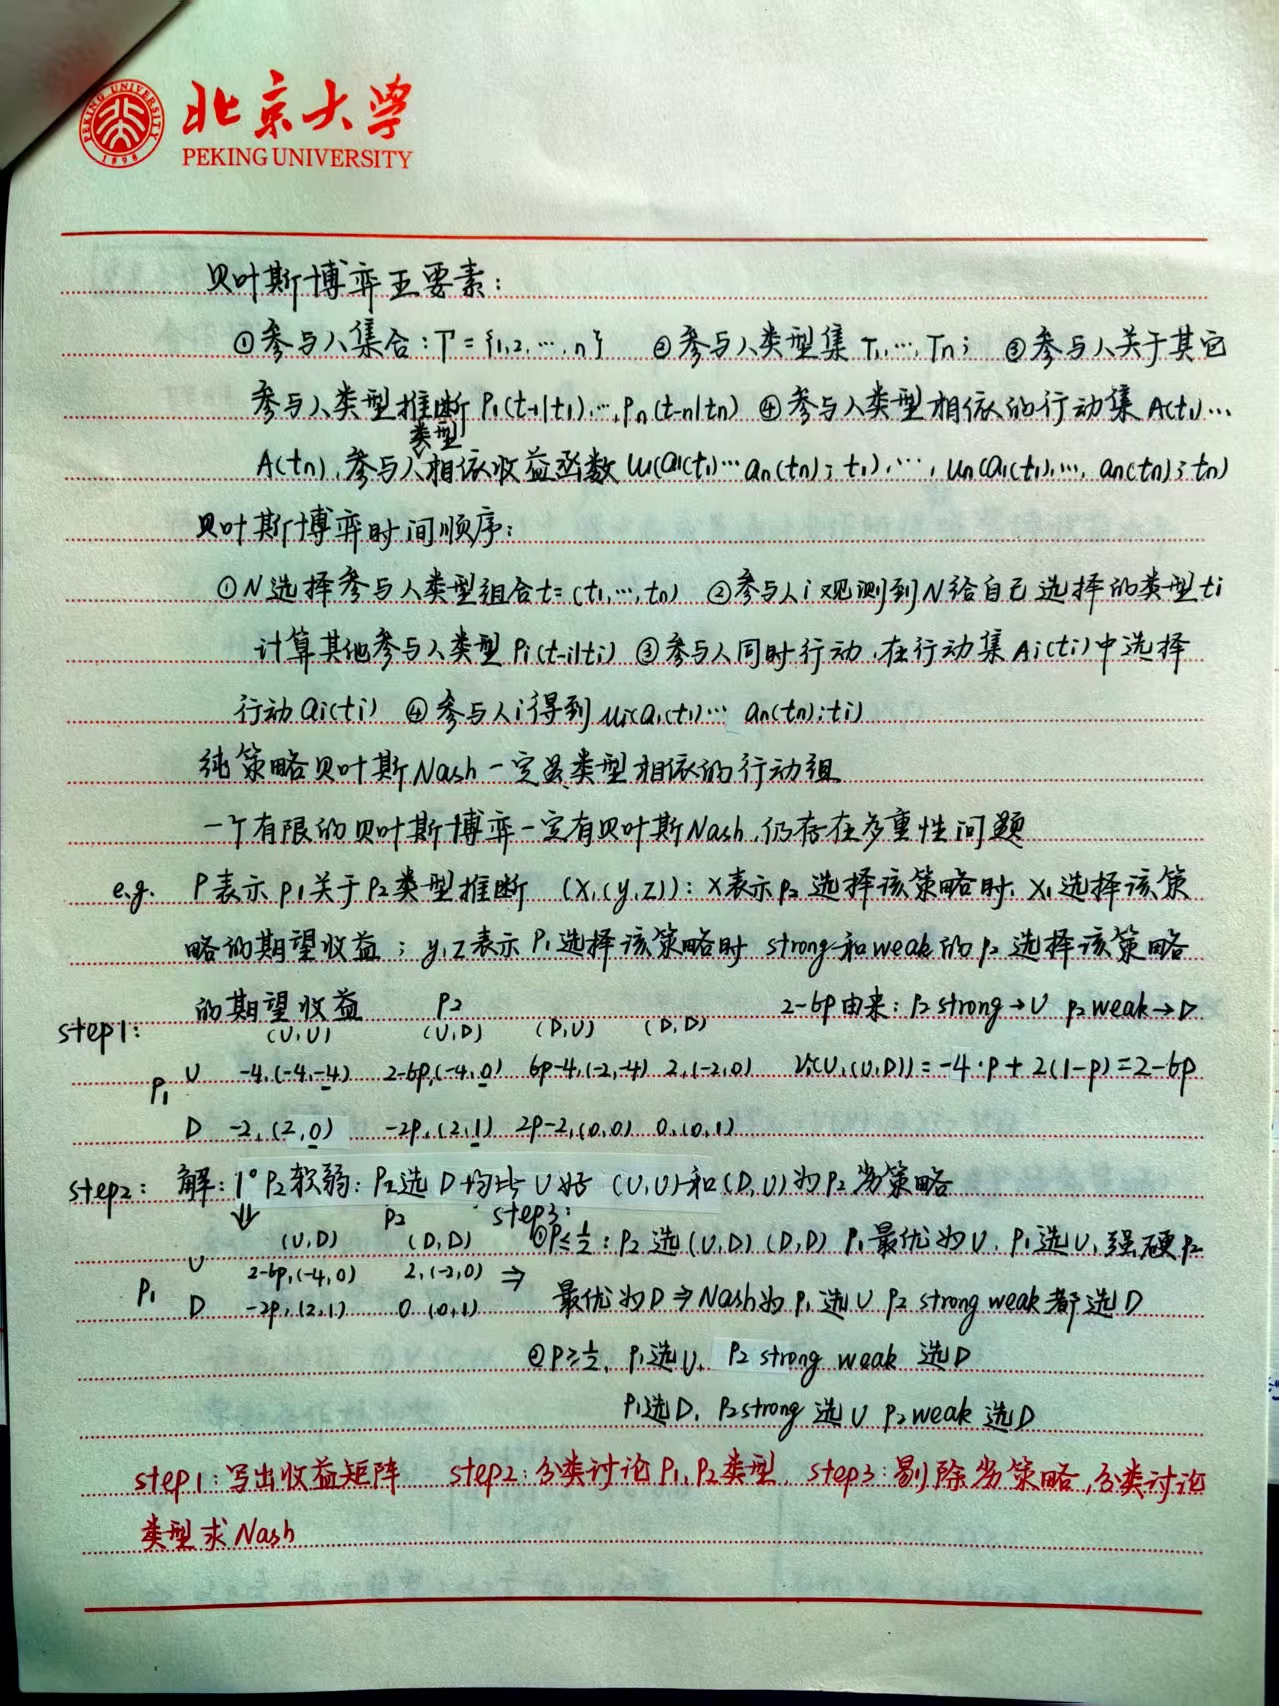 PEKING UNIVERSITY 1898
北京大学
PEKING UNIVERSITY
贝叶斯博弈五要素：
①参与人集合：T={1,2,…,n} ②参与人类型集 T₁,…,Tn； ③参与人关于其它
参与人类型推断 P₁(t-1|t₁),…,Pn(t-n|tn) ④参与人类型相依的行动集 A(t₁)…
类型
A(tn),参与人相依收益函数 u₁(a₁(t₁)…an(tn)；t₁),…,un(a₁(t₁),…,an(tn)；tn)
贝叶斯博弈时间顺序：
①N选择参与人类型组合t=(t₁,…,tn) ②参与人i观测到N给自己选择的类型ti
计算其他参与人类型 Pi(t-i|ti) ③参与人同时行动,在行动集Ai(ti)中选择
行动ai(ti) ④参与人i得到ui(a₁(t₁)…an(tn);ti)
纯策略贝叶斯Nash一定是类型相依的行动组
一个有限的贝叶斯博弈一定有贝叶斯Nash,仍存在多重性问题
e.g. P表示P₁关于P₂类型推断 (X,(y,z))：X表示P₂选择该策略时,X₁选择该策
略的期望收益；y,z表示P₁选择该策略时 strong和weak的P₂选择该策略
的期望收益 P2 2-6p由来：P₂strong→U P₂weak→D
step1: (U,U) (U,D) (D,U) (D,D)
P₁ U -4,(-4,-4) 2-6p,(-4,0) 6p-4,(-2,-4) 2,(-2,0) V₁(U,(U,D))=-4·p+2(1-p)=2-6p
D -2,(2,0) -2p,(2,1) 2p-2,(0,0) 0,(0,1)
step2: 解：1°P₂软弱：P₂选D均比U好 (U,U)和(D,U)为P₂劣策略
⇓ P2 step3:
(U,D) (D,D) ①P≤½：P₂选(U,D)(D,D) P₁最优为U,P₁选U,强硬P₂
U 2-6p,(-4,0) 2,(-2,0) ⇒
P₁ D -2p,(2,1) 0,(0,1) 最优为D⇒Nash为P₁选U P₂ strong weak都选D
②P≥½, P₁选U, P₂ strong weak 选D
P₁选D, P₂strong选U P₂weak选D
step1:写出收益矩阵 step2:分类讨论P₁,P₂类型 step3:剔除劣策略,分类讨论
类型求Nash